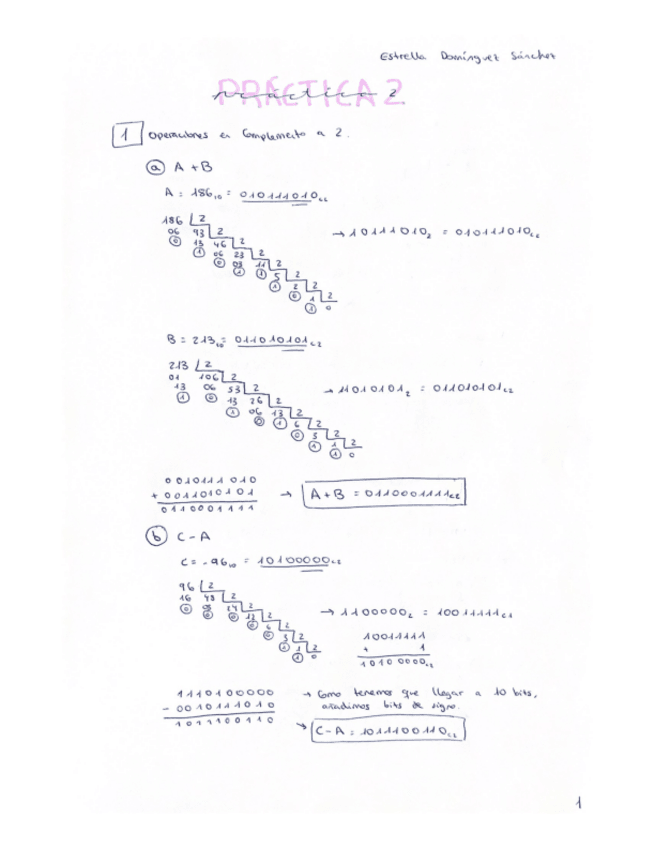 Estrella Domínguez Sánchez
PRÁCTICA 2
práctica 2
1 Operaciones en Complemento a 2.
a A + B
A = 186₁₀ = 010111010c2
186 2
06 93 2
0 13 46 2
1 06 23 2
0 03 11 2
1 1 5 2
1 2 2
0 1 2
1 0
→ 10111010₂ = 010111010c2
B = 213₁₀ = 011010101c2
213 2
01 106 2
13 06 53 2
1 0 13 26 2
1 06 13 2
0 1 6 2
0 3 2
1 1 2
1 0
→ 11010101₂ = 011010101c2
0010111010
+ 0011010101
0110001111
→ A + B = 0110001111c2
b C - A
C = -96₁₀ = 10100000c2
96 2
16 48 2
0 08 24 2
0 0 12 2
0 6 2
0 3 2
1 1 2
1 0
→ 1100000₂ = 10011111c1
10011111
+ 1
10100000c2
1110100000
- 0010111010
1011100110
→ Como tenemos que llegar a 10 bits,
añadimos bits de signo.
→ C - A = 1011100110c2
1